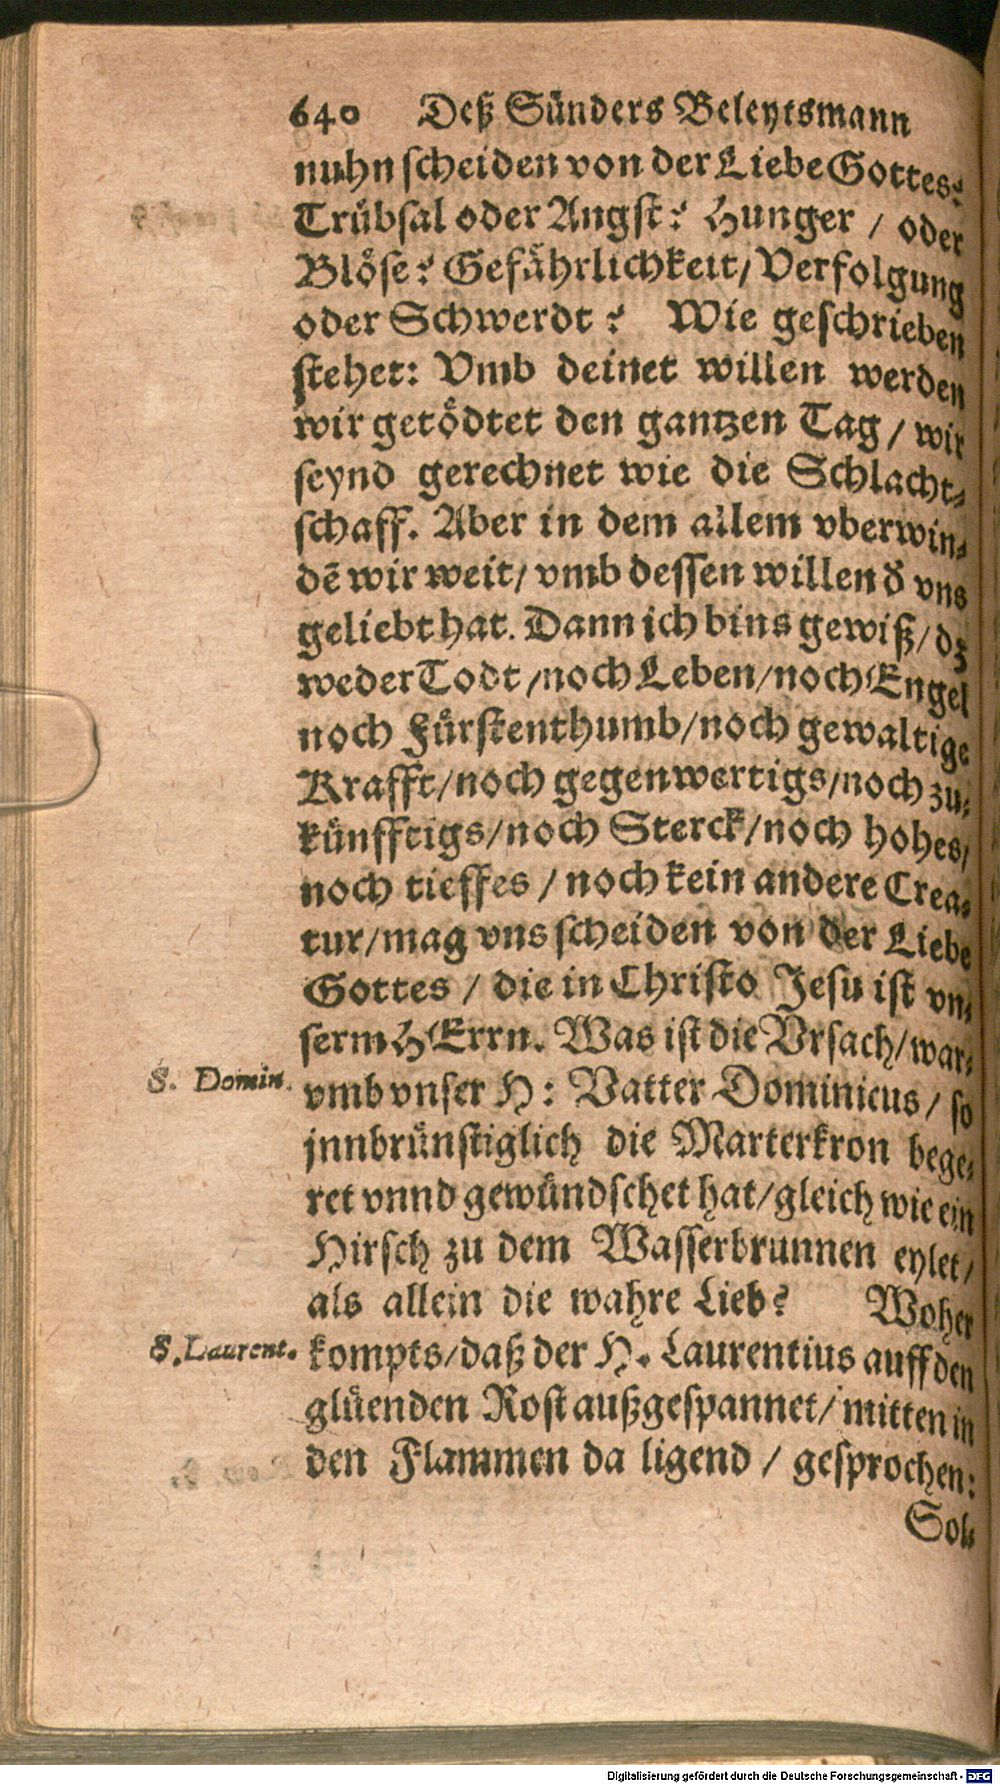 640 Deß Sünders Beleytsmann
nuhn scheiden von der Liebe Gottes?
Trübsal oder Angst? Hunger / oder
Blöse? Gefährlichkeit / Verfolgung
oder Schwerdt? Wie geschrieben
stehet: Vmb deinet willen werden
wir getödtet den gantzen Tag / wir
seynd gerechnet wie die Schlacht-
schaff. Aber in dem allem vberwin-
dẽ wir weit / vmb dessen willen d' vns
geliebt hat. Dann ich bins gewiß / dz
weder Todt / noch Leben / noch Engel
noch Fürstenthumb / noch gewaltige
Krafft / noch gegenwertigs / noch zu-
künfftigs / noch Sterck / noch hohes /
noch tieffes / noch kein andere Crea-
tur / mag vns scheiden von der Liebe
Gottes / die in Christo Jesu ist vn-
serm HErrn. Was ist die Vrsach / war-
S. Domin. vmb vnser H: Vatter Dominicus / so
jnnbrünstiglich die Marterkron bege-
ret vnnd gewündschet hat / gleich wie ein
Hirsch zu dem Wasserbrunnen eylet /
als allein die wahre Lieb? Woher
S. Laurent. kompts / daß der H. Laurentius auff den
glüenden Rost außgespannet / mitten in
den Flammen da ligend / gesprochen:
Sol-
Digitalisierung gefördert durch die Deutsche Forschungsgemeinschaft - DFG